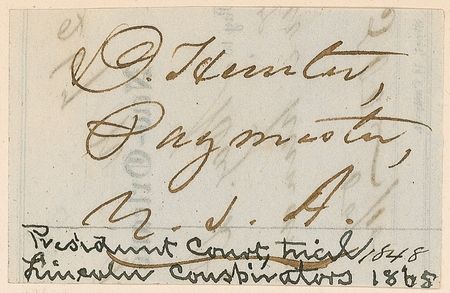 D. Hunter,
Paymaster,
U. S. A.
President Court, trial 1848
Lincoln Conspirators 1865